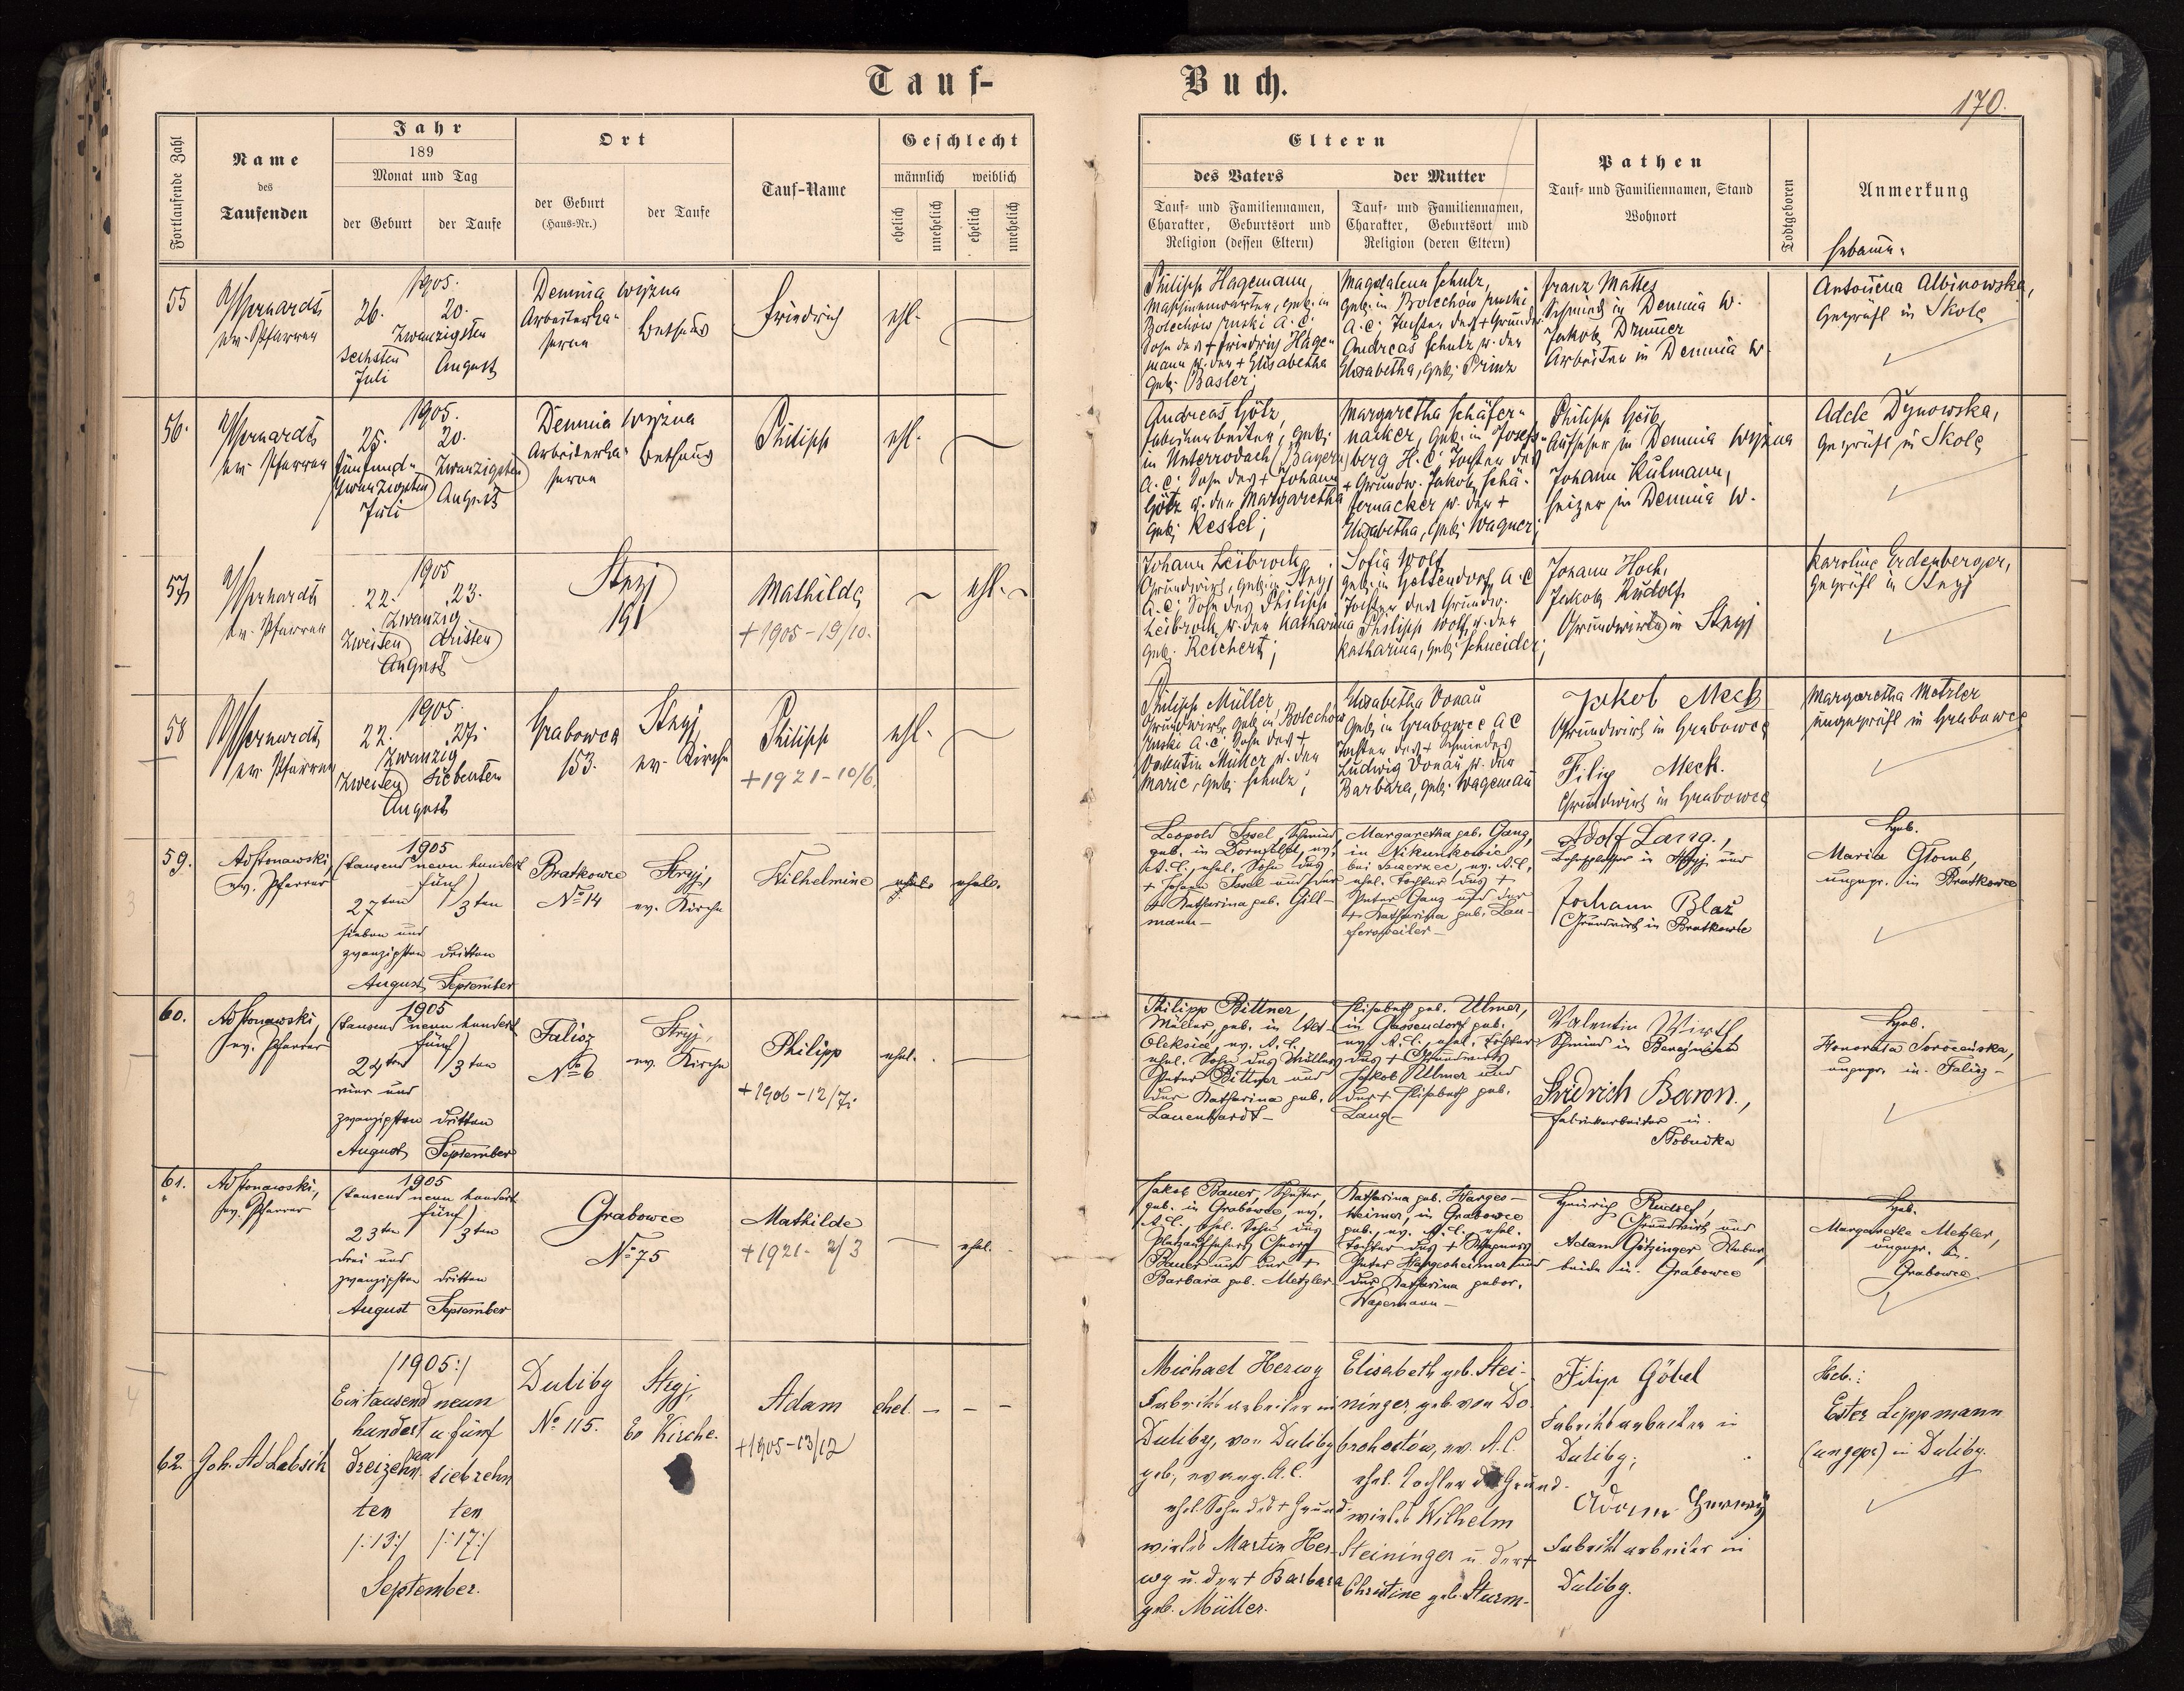 Tauf-
Buch.
170.
Fortlaufende Zahl
Name
des
Taufenden
Jahr
189
Monat und Tag
der Geburt
der Taufe
Ort
der Geburt
(Haus-Nr.)
der Taufe
Tauf-Name
Geschlecht
männlich
weiblich
ehelich
unehelich
ehelich
unehelich
Eltern
des Vaters
der Mutter
Tauf- und Familiennamen,
Charakter, Geburtsort und
Religion (dessen Eltern)
Tauf- und Familiennamen,
Charakter, Geburtsort und
Religion (deren Eltern)
Pathen
Tauf- und Familiennamen, Stand
Wohnort
Todtgeboren
Anmerkung
55
ev. Pfarrer
1905.
26.
20.
Zwanzigsten
sechsten
Juli
August
Demnia wyzna
Arbeiterka-
serne
Bethaus
Friedrich
ehl.
Philipp Hagemann,
Maschinenwärter, geb. in
Bolechów ruski A. C.
Sohn des + Friedrich Hage-
mann u. der + Elisabetha
geb. Basler;
Magdalena Schulz,
geb. in Bolechów ruski
A. C. Tochter des + Grundw.
Andreas Schulz u. der
Elisabetha, geb. Prinz
Franz Mattes
Schmied in Demnia w.
Jakob Drumer
Arbeiter in Demnia w.
Hebamme
Antonina Albinowska,
geprüft in Skole
56.
ev. Pfarrer
1905.
25.
20.
fünfund-
zwanzigsten
Juli
Zwanzigsten
August
Demnia wyzna
Arbeiterka-
serne
Bethaus
Philipp
ehl.
Andreas Götz,
Fabrikarbeiter, geb.
in Unterrodach (Bayern)
A. C. Sohn des + Johann
Götz u. der Margaretha
geb. Kestel;
Margaretha Schäfer-
nacker, geb. in Josefs-
berg H. C. Tochter des
+ Grundw. Jakob Schä-
fernacker u. der +
Elisabetha, geb. Wagner;
Philipp Geib,
Aufseher in Demnia wyzna
Johann Kulmann,
Heizer in Demnia w.
Adele Dynowska,
geprüft in Skole
57
ev. Pfarrer
1905
22.
23.
Zwanzig
zweiten
dritten
August
Stryj
191
Mathilde
+ 1905 - 19/10.
ehl.
Johann Leibrock,
Grundwirt, geb. in Stryj
A. C. Sohn des Philipp
Leibrock u. der Katharina
geb. Reichert;
Sofia Wolf
geb. in Gelsendorf, A. C.
Tochter des Grundw.
Philipp Wolf u. der
Katharina, geb. Schneider;
Johann Hoch,
Jakob Rudolf
Grundwirte in Stryj
Karoline Erdenberger,
geprüft in Stryj
58
ev. Pfarrer
1905.
22.
27.
Zwanzig
zweiten
siebenten
August
Grabowce
153.
Stryj,
ev. Kirche
Philipp
+ 1921 - 10/6.
ehl.
Philipp Müller,
Grundwirt, geb. in Bolechów
ruski A. C. Sohn des +
Valentin Müller u. der
Marie, geb. Schulz;
Elisabetha Donau
geb. in Grabowce A C
Tochter des + Schmiedes
Ludwig Donau u. der
Barbara, geb. Wagemañ
Jakob Meck
Grundwirt in Grabowce
Filip Meck.
Grundwirt in Grabowce
Margaretha Metzler
ungeprüft in Grabowce
59.
ev. Pfarrer
1905
(tausend neun hundert
fünf)
27ten
3ten
sieben und
zwanzigsten
dritten
August
September
Bratkowce
No 14
Stryj,
ev. Kirche
Wilhelmine
ehel.
Leopold Josel, Schmied,
geb. in Dornfeld, ev.
A. C., ehel. Sohn des
+ Johann Josel und der
+ Katharina geb. Gill-
mann -
Margaretha geb. Ganz,
ev. A. C.,
ehel. Tochter des +
Peter Ganz und der
+ Katharina geb. Lau-
fersweiler -
Adolf Lang.,
in Stryj und
Johann Blaž
Grundwirt in Bratkowce
Heb.
Maria Głomb,
ungepr. in Bratkowce
60.
ev. Pfarrer
1905
(tausend neun hundert
fünf)
24ten
3ten
vier und
zwanzigsten
dritten
August
September
Falisz
No 6
Stryj,
ev. Kirche
Philipp
+ 1906 - 12/7.
ehel.
Philipp Bittner
Müller, geb. in Wol-
Oleksice, ev. A. C.,
ehel. Sohn des Müllers
Peter Bittner und
der Katharina geb.
Lauenhardt -
Elisabeth geb. Ulmer,
in Gassendorf geb.
ev. A. C., ehel. Tochter
des + Grundwirts
Jakob Ulmer und
der + Elisabeth geb.
Lang -
Valentin Wirth
Schmied in Bereznica
Fridrich Baron.,
Fabrikarbeiter in
Łobudka
Heb.
ungepr. in Falisz -
61.
ev. Pfarrer
1905
(tausend neun hundert
fünf)
23ten
3ten
drei und
zwanzigsten
dritten
August
September
Grabowce
No 75
Mathilde
+ 1921 - 2/3
ehel.
Jakob Bauer, Schuster,
geb. in Grabowce, ev.
A. C., ehel. Sohn des
Platzaufsehers Georg
Bauer und der +
Barbara geb. Metzler.
Katharina geb. Harges-
heimer, in Grabowce
geb., ev. A. C., ehel.
Tochter des + Wagners
Peter Hargesheimer und
der Katharina gebor.
Wagemann -
Heinrich Rudolf,
Grundwirt und
Adam Götzinger, Weber,
beide in Grabowce
Heb.
Margaretha Metzler,
ungepr. in
Grabowce.
62.
/1905:/
Eintausend neun
hundert u fünf
dreizehn
ten
/:13:/
siebzehn
ten
/:17:/
September.
Duliby
No 115.
Stryj,
Ev Kirche.
Adam
+ 1905 - 13/12
ehel. - - -
Michael Herwy
Fabriksarbeiter in
Duliby, von Duliby
geb., evang. A. C.
ehel. Sohn des + Grund-
wirtes Martin Her-
wy u. der + Barbara
geb. Müller.
Elisabeth geb. Stei-
ninger, geb. von Do-
brohostów, ev. A. C.
ehel. Tochter d. Grund-
wirtes Wilhelm
Steininger u. der +
Christine geb. Sturm-
Filip Göbel
Fabriksarbeiter in
Duliby;
Adam Herwy
Fabriksarbeiter in
Duliby.
Heb.:
Ester Lippmann
(ungepr.) in Duliby.